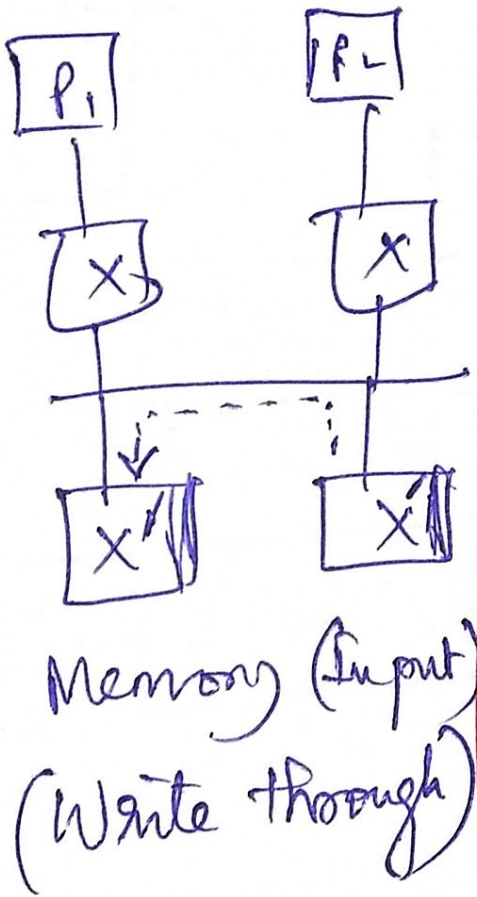 P1 P2
X X
X' X'
Memory (Input)
(Write through)